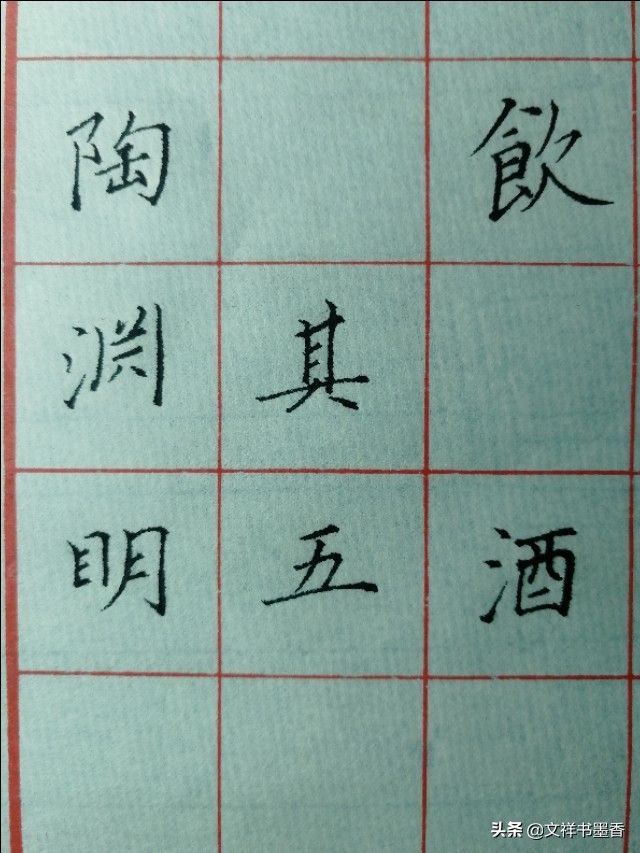 飲酒
其五
陶渊明
头条 @文祥书墨香